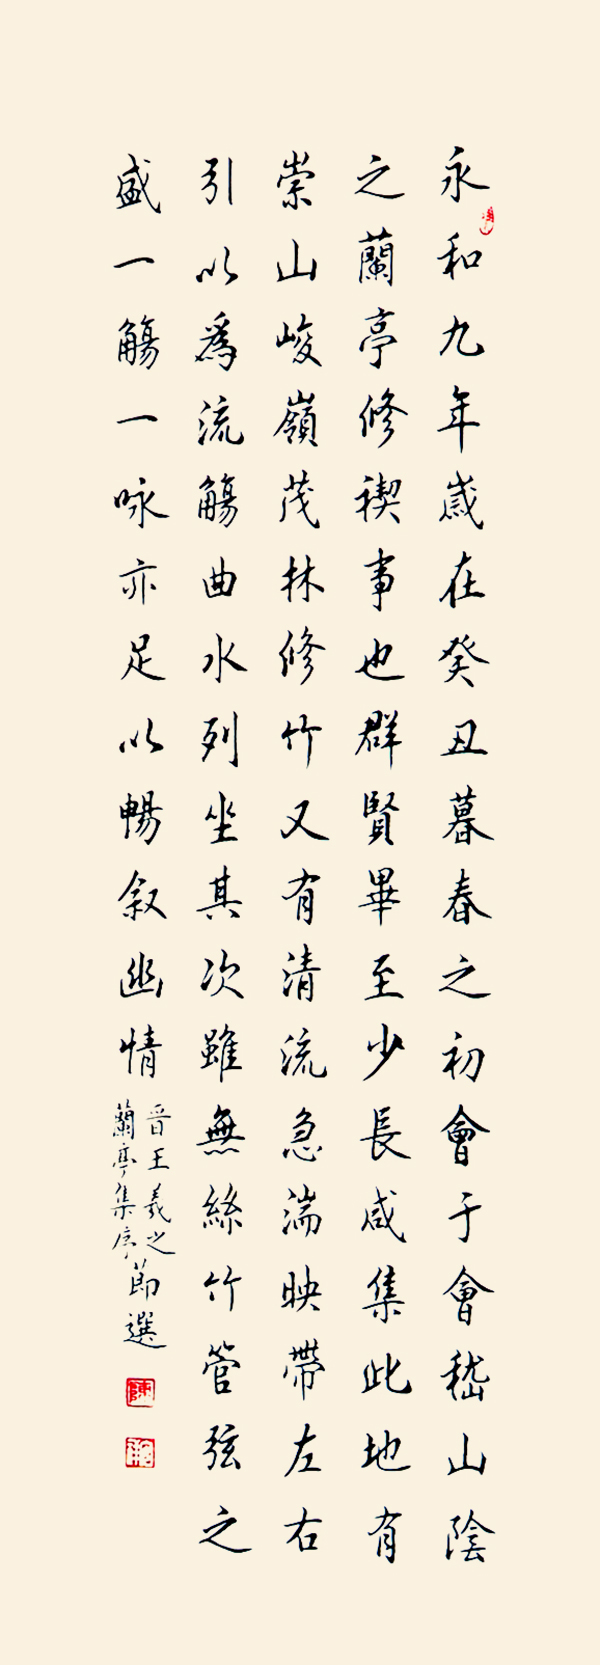 永和九年歲在癸丑暮春之初會于會稽山陰
之蘭亭修禊事也群賢畢至少長咸集此地有
崇山峻嶺茂林修竹又有清流急湍映帶左右
引以為流觴曲水列坐其次雖無絲竹管弦之
盛一觴一咏亦足以暢叙幽情
晋王羲之
蘭亭集序
節選